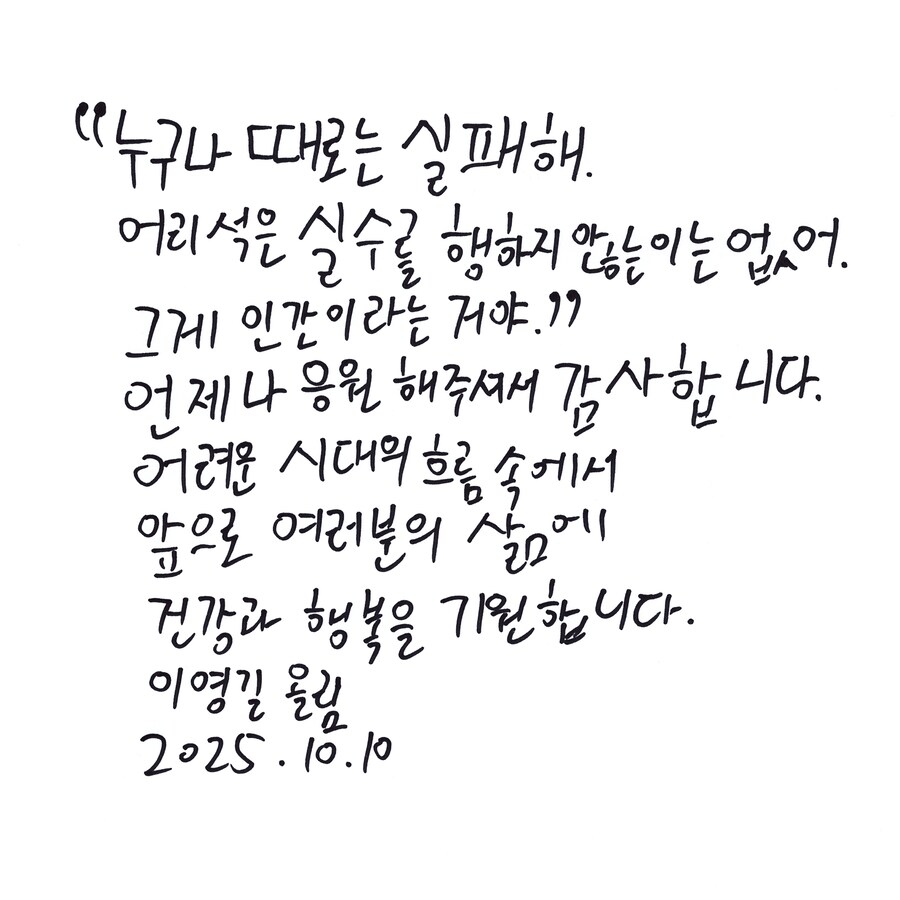 “누구나 때로는 실패해.
어리석은 실수를 행하지 안하는 이는 없어.
그게 인간이라는 거야.”
언제나 응원 해주셔서 감사합니다.
어려운 시대의 흐름 속에서
앞으로 여러분의 삶에
건강과 행복을 기원합니다.
이영길 올림
2025.10.10